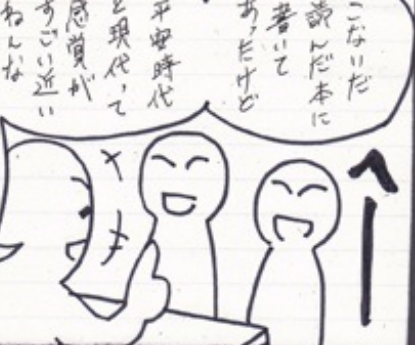 こないだ
読んだ本に
書いて
あったけど
平安時代
と現代って
感覚が
すごい近い
ねんな
へー